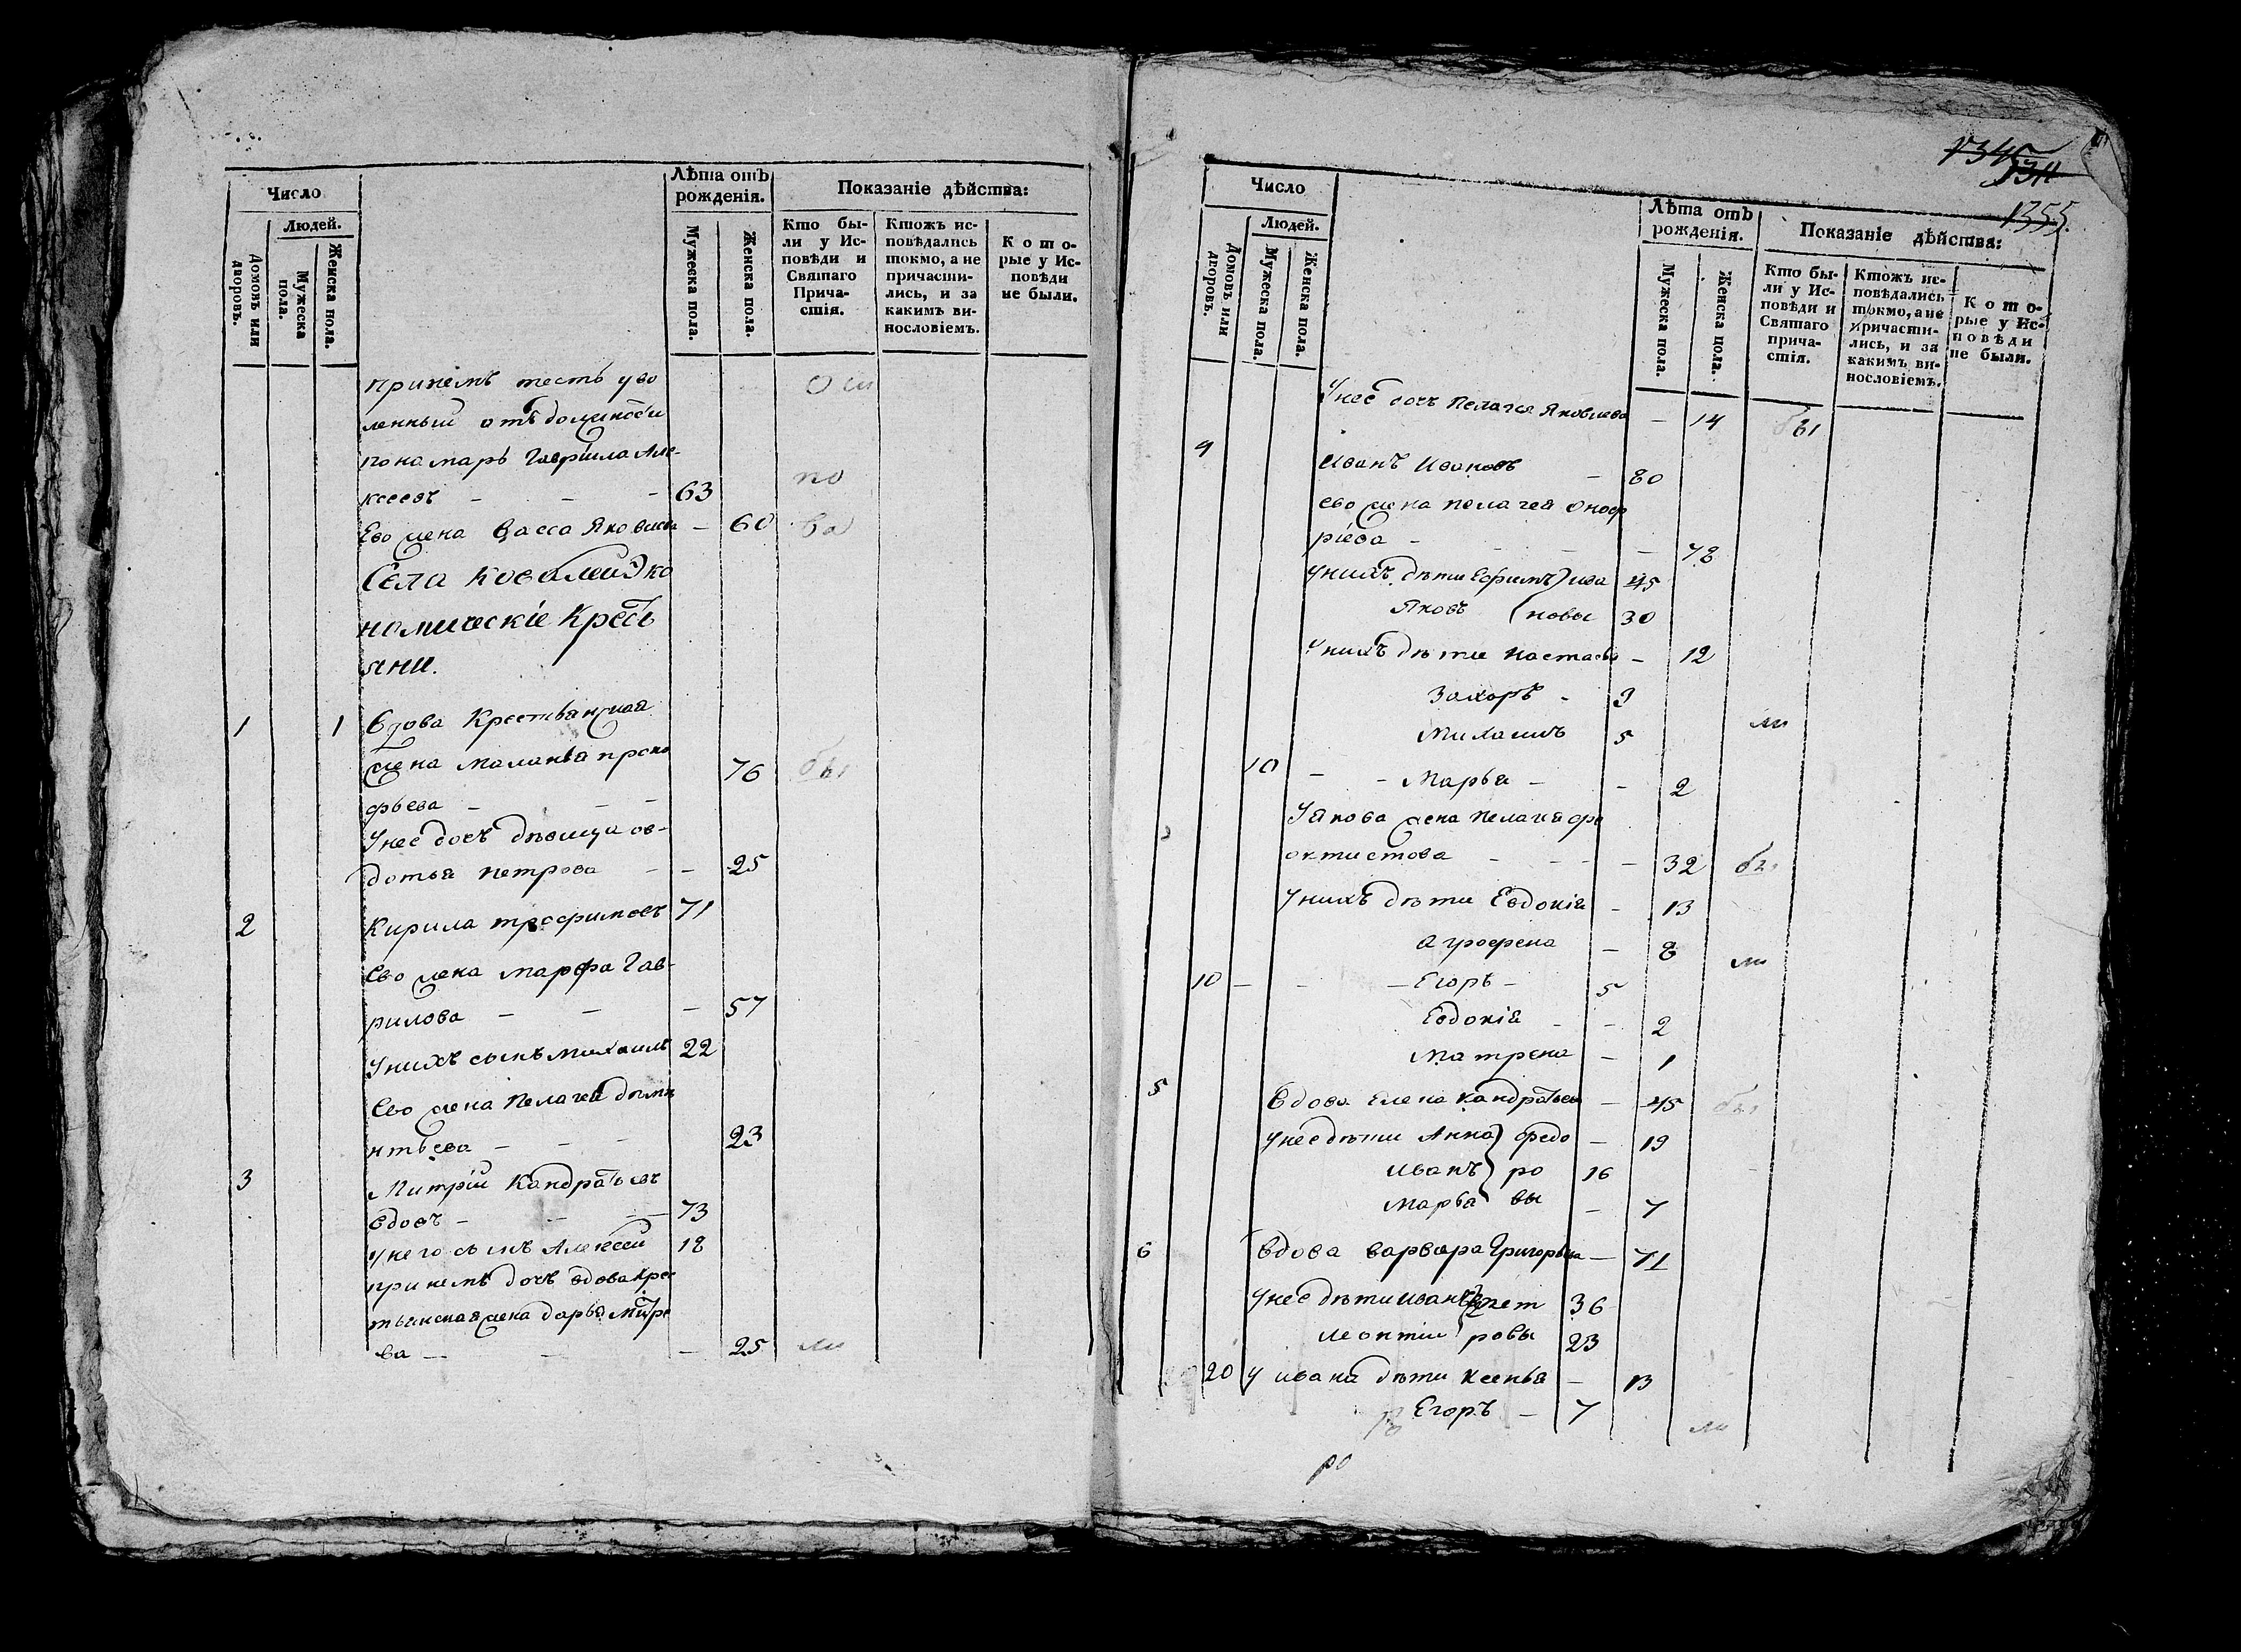 Число
Людей.
Домовъ или дворовъ.
Мужеска пола.
Женска пола.
Лѣта отъ рожденія.
Мужеска пола.
Женска пола.
Показаніе дѣйства:
Кто бы-
ли у Ис-
повѣди и
Святаго
Прича-
стія.
Ктожъ ис-
повѣдались
токмо, а не
причасти-
лись, и за
какимъ ви-
нословіемъ.
К о т о-
рые у Ис-
повѣди
не были.
принемъ тесть уво
ленный отъ должности
пономарь Гаврiила Але-
ксеевъ - - - 63 по
Ево жена Васса Яковлева - 60 ва
Села Эко
номическіе Кресть
яни.
1 1 Вдова Крестьянская
жена Маланья проко 76 бы
фьева - - -
Унее дочь дѣвица ов-
дотья петрова - - 25
2 Кирила трофимовъ 71
Ево жена марфа Гав-
рилова - - - 57
Унихъ сынъ михаилъ 22
Ево жена Пелагея дѣме
нтьева - - - 23
3 Митрій Кандратьевъ
вдовъ - - - 73
унего сынъ Алексей 18
принемъ дочь вдова Крес
тьянская жена дарья Митре
ва - - - 25 ли
1345
1355.
Число
Людей.
Домовъ или дворовъ.
Мужеска пола.
Женска пола.
Лѣта отъ
рожденія.
Мужеска пола.
Женска пола.
Показаніе дѣйства:
Кто бы-
ли у Ис-
повѣди и
Святаго
прича-
стія.
Ктожъ ис-
повѣдались
токмо, а не
причасти-
лись, и за
какимъ ви-
нословіемъ.
К о т о-
рые у Ис-
повѣди
не были.
Унее дочь Пелагея Яковлева - 14 бы
4 Иванъ Ивановъ - 80
ево жена пелагея Оноф
ріева - - - 78
унихъ дѣти Ефимъ) ива 45
Яковъ (новы 30
Унихъ дѣти настасья - 12
Захаръ - 9
Михаилъ 5 ли
10 - - Марья - - 2
Уякова жена пелагея фе
октистова - - - - 32 бы
Унихъ дѣти Евдокія - 13
Аграфена - 8 ли
10 - - - Егоръ - 5
Евдокія - - 2
Матрена - 1
5 Вдова Елена Кандратьева - 45 бы
Унее дѣти Анна) федо - 19
Иванъ) ро 16
Марья) вы - 7
6 Вдова варвара Григорьева - 71
Унее дѣти иванъ) пет 36
леонтіи) ровы 23
20 У ивана дѣти ксенья - 13
Егоръ - 7 ли
ро